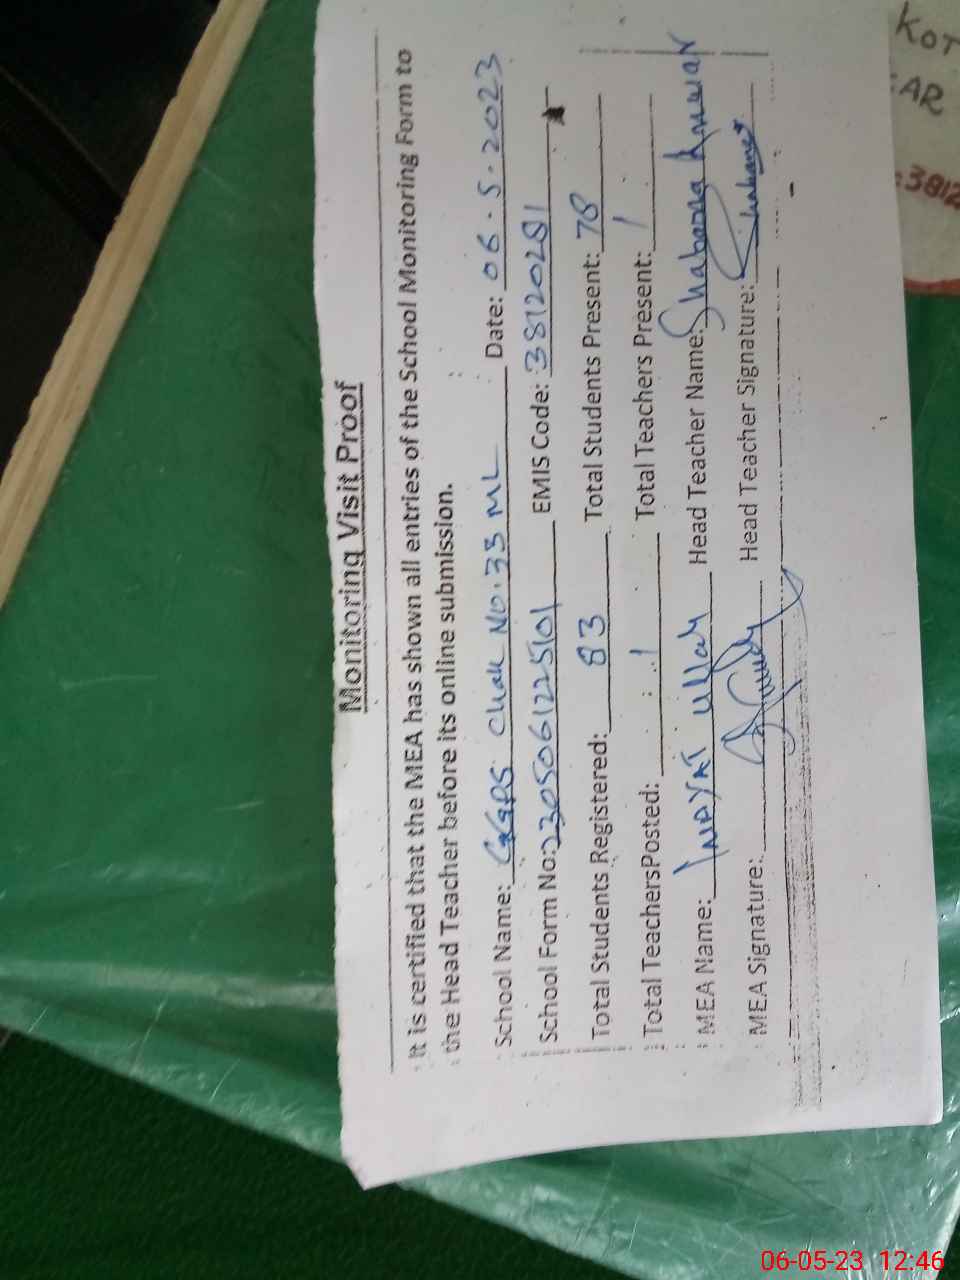 Monitoring Visit Proof
It is certified that the MEA has shown all entries of the School Monitoring Form to
the Head Teacher before its online submission.
School Name: GGPS Chak No. 33 ML Date: 06-5-2023
School Form No: 2305061225101 EMIS Code: 38120281
Total Students Registered: 83 Total Students Present: 78
Total TeachersPosted: 1 Total Teachers Present: 1
MEA Name: INAYAT Ullah Head Teacher Name: Shabana Anwar
MEA Signature: Head Teacher Signature:
KOT
AR
:3812
06-05-23 12:46